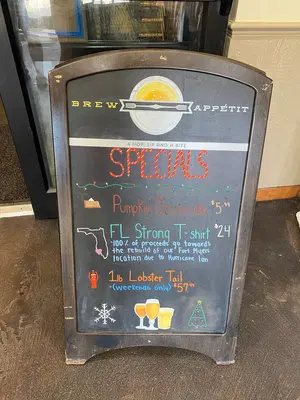 BREW APPÉTIT
A COOL CUP AND A BITE
SPECIALS
Pumpkin $5.99
FL Strong T-shirt $24
-100% of proceeds go towards
the rebuild of our Fort Myers
location due to Hurricane Ian
1lb Lobster Tail
-(weekends only) $57.99